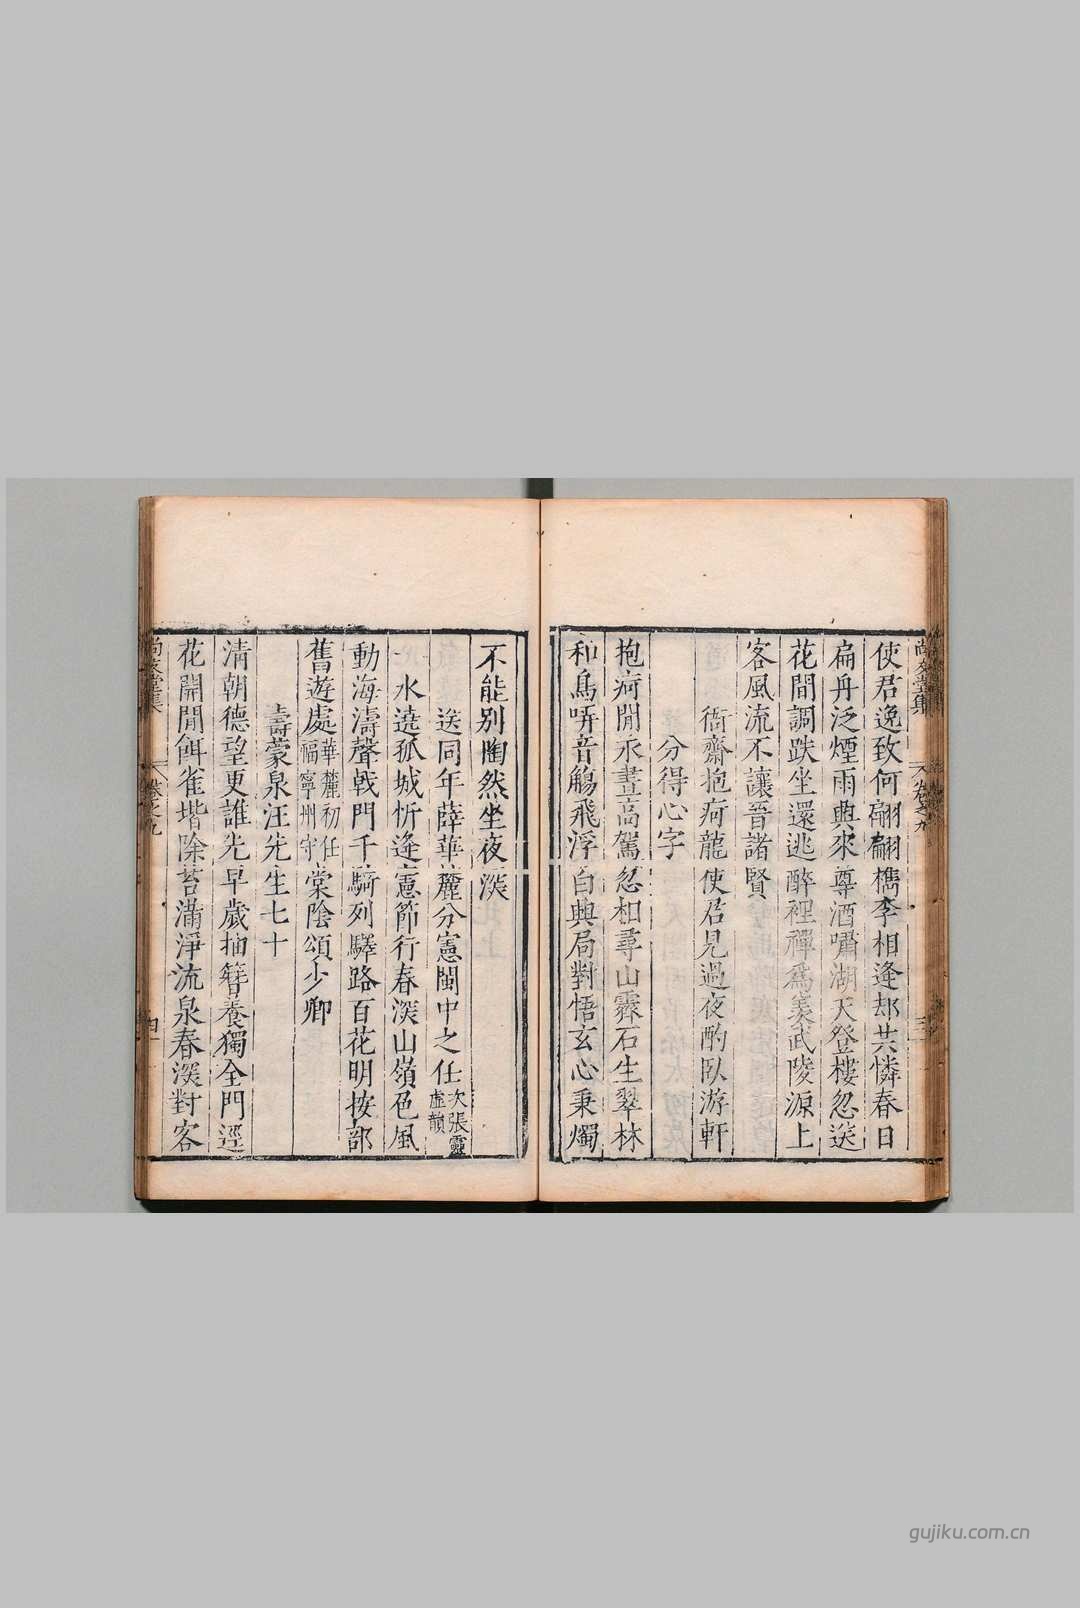 使君逸致何翩翩檇李相逢却共憐春日
扁舟泛煙雨興來尊酒嘯湖天登樓忽送
花間調趺坐還逃醉裡禪爲羨武陵源上
客風流不讓晉諸賢
衙齋抱疴龍使君見過夜酌臥游軒
分得心字
抱疴閒永晝高駕忽相尋山霽石生翠林
和鳥哢音觴飛浮白興局對悟玄心秉燭
不能別陶然坐夜深
送同年薛華麓分憲閩中之任次張靈虛韻
一水遶孤城忻逢憲節行春深山嶺色風
動海濤聲戟門千騎列驛路百花明按部
舊遊處華麓初任福寧州守棠陰頌少卿
壽蒙泉汪先生七十
清朝德望更誰先早歲抽簪養獨全門逕
花開閒餌雀堦除苔滿淨流泉春深對客
卷之九
三
卷之九
四
gujiku.com.cn